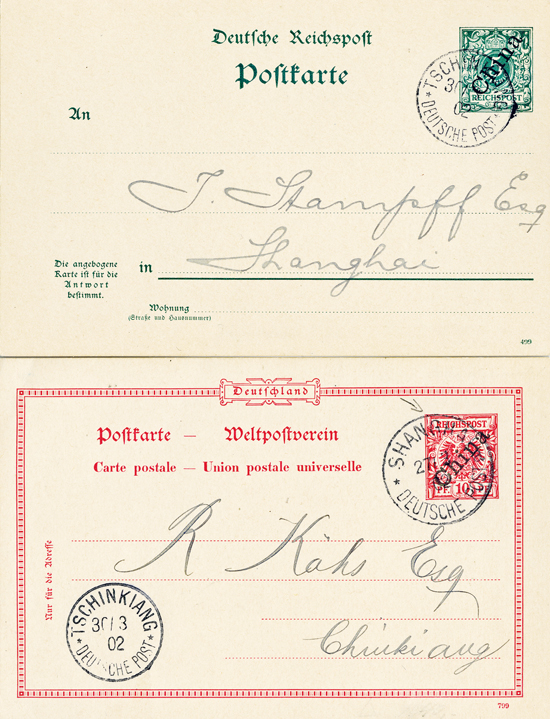 Deutsche Reichspost
Postkarte
China
REICHSPOST
TSCHINKIANG
30/3
02
* DEUTSCHE POST *
An
J. Stampff Esq
Die angebogene
Karte ist für die
Antwort
bestimmt.
in Shanghai
Wohnung
(Straße und Hausnummer)
499
Deutschland
Postkarte — Weltpostverein
Carte postale — Union postale universelle
REICHSPOST
China
PF 10 PF
SHANGHAI
* DEUTSCHE POST
Nur für die Adresse
R Kähs Esq
Chinkiang
TSCHINKIANG
30/3
02
* DEUTSCHE POST *
799